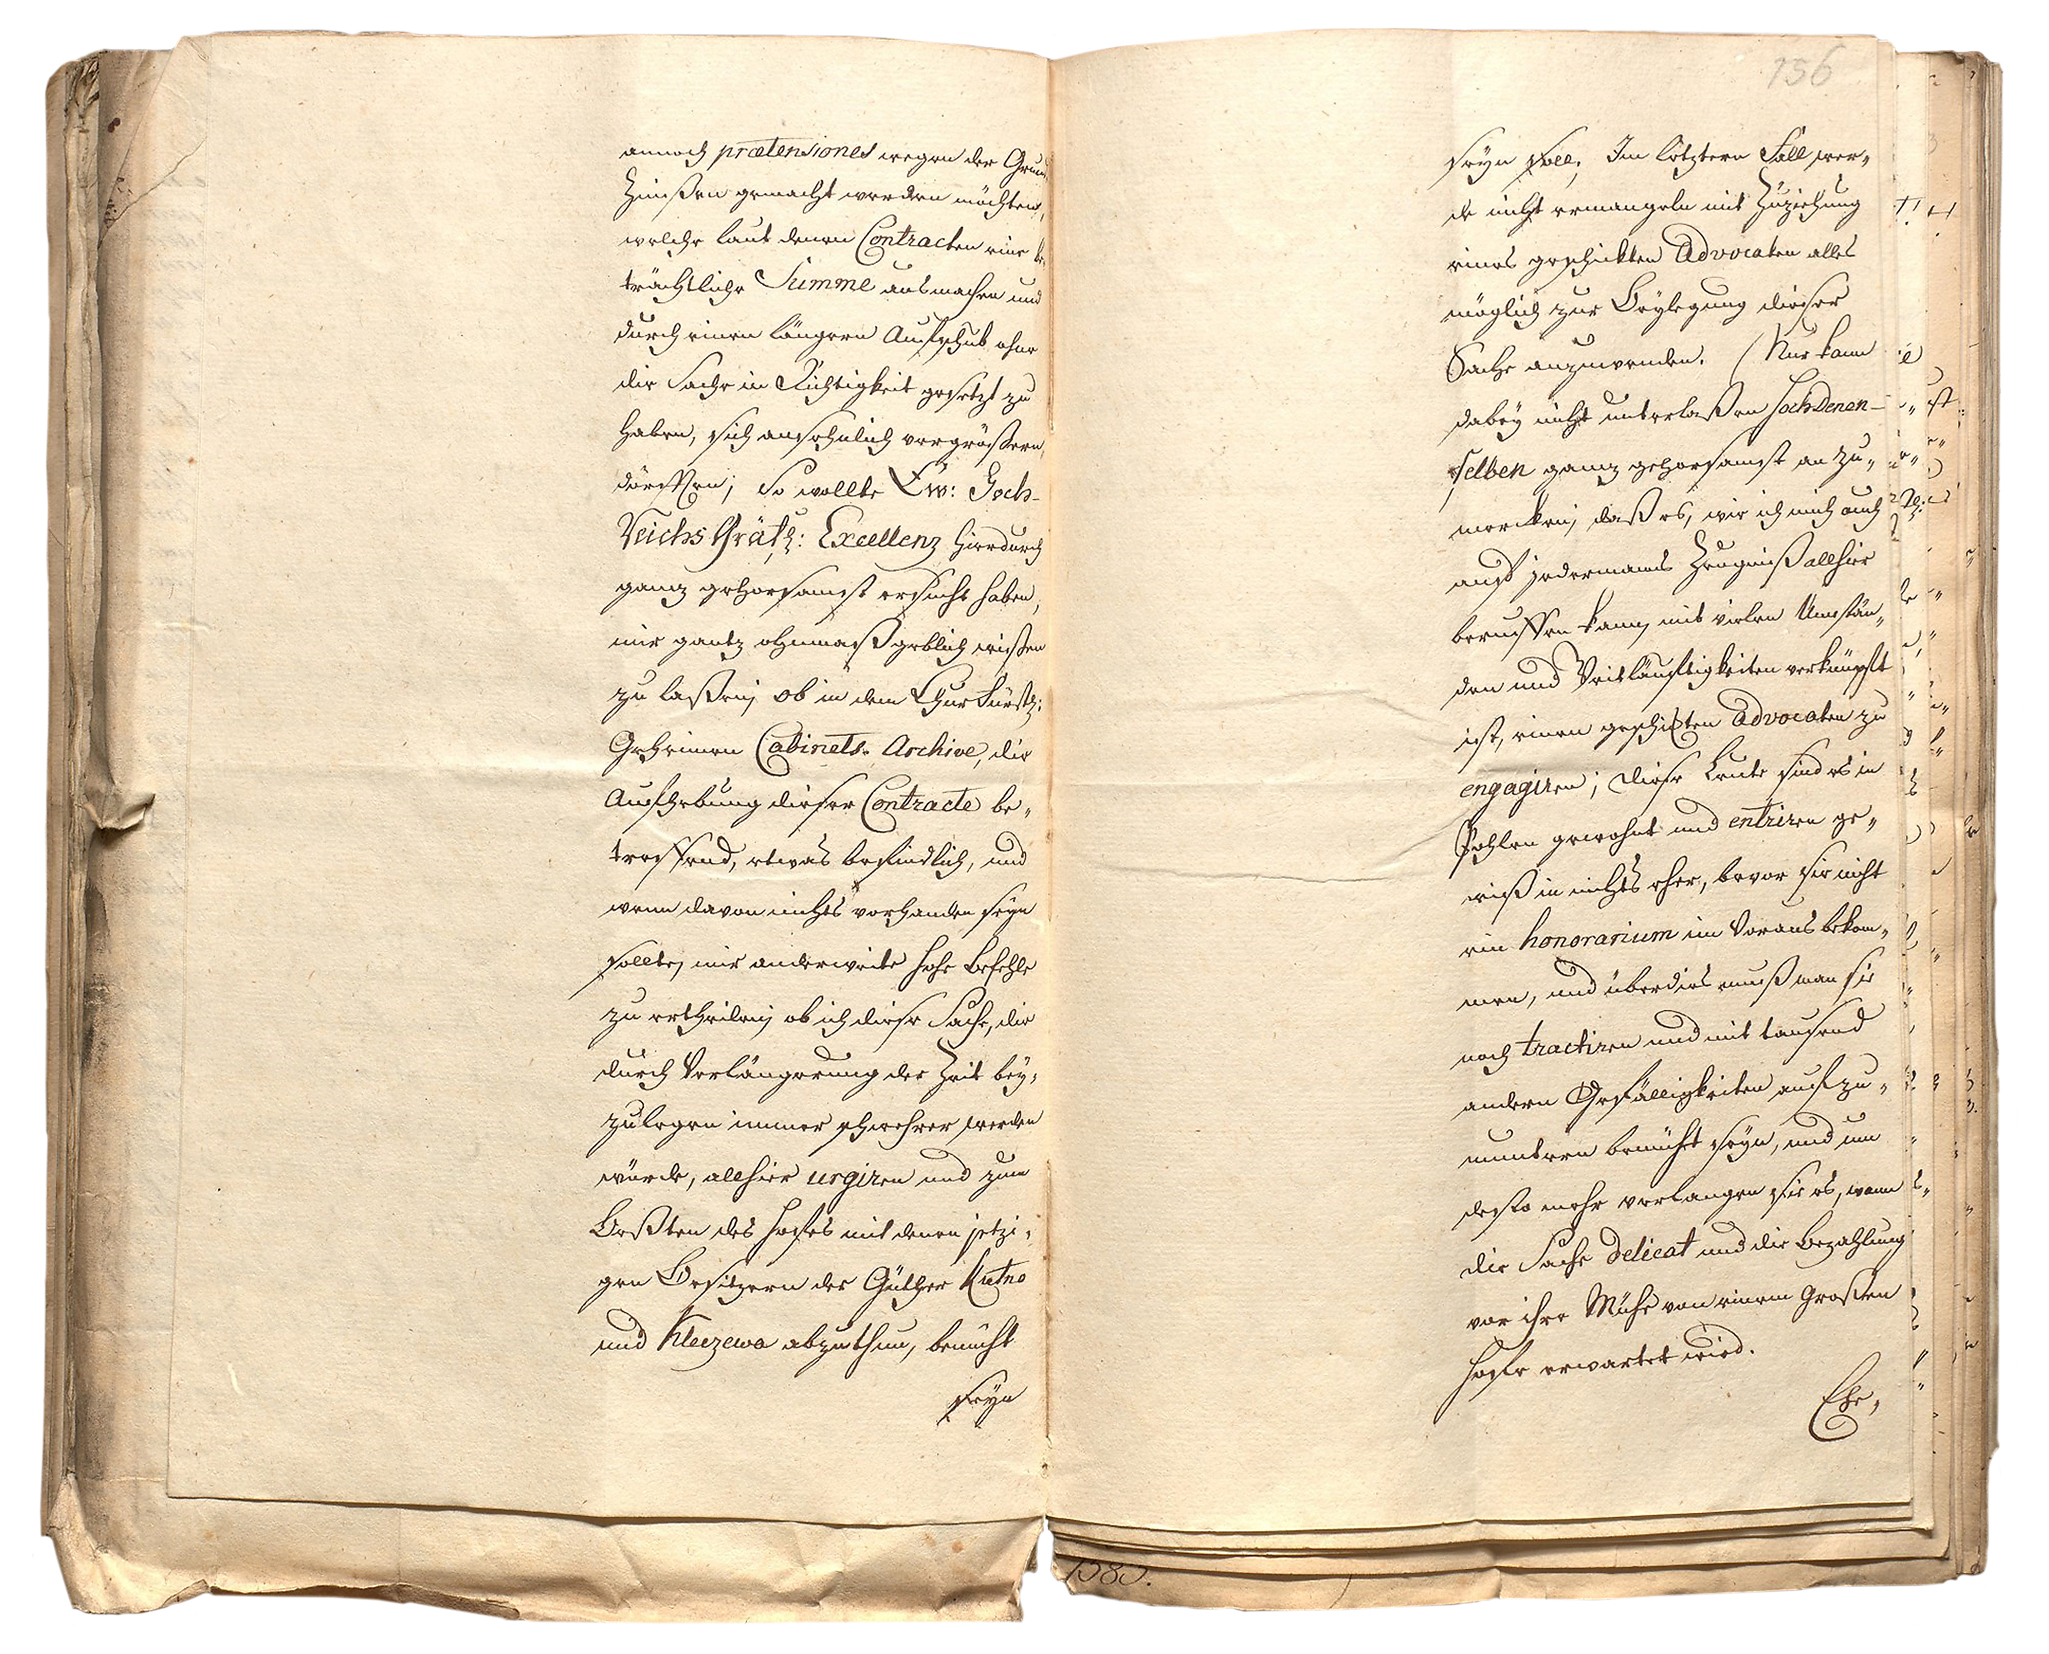 annoch prætensiones wegen der Grund
Zinßen gemacht werden möchten,
welche laut denen Contracten eine be-
trächtliche Summe ausmachen und
durch einen längern Aufschub ohne
die Sache in Richtigkeit gesetzt zu
haben, sich ansehnlich vergrößern
dörfften; So wollte Ew: Hoch-
Reichs Gräfl: Excellenz hierdurch
gantz gehorsamst ersucht haben,
mir gantz ohnmaßgeblich wißen
zu laßen, ob in dem ChurFürstl:
Geheimen Cabinets-Archive, die
Aufhebung dieser Contracte be-
treffend, etwas befindlich, und
wenn davon nichts vorhanden seyn
sollte, mir anderweite hohe Befehle
zu ertheilen, ob ich diese Sache, die
durch Verlängerung der Zeit bey-
zulegen immer schwehrer werden
würde, allhier urgiren und zum
Besten des Hofes mit denen jetzi-
gen Besitzern der Güther Kutno
und Kleczewo abzuthun, bemüht
seyn
156
seyn soll; Im letztern Fall wer-
de nicht ermangeln mit Zuziehung
eines geschickten Advocaten alles
möglich zur Beylegung dieser
Sache anzuwenden. Nur kann
dabey nicht unterlaßen Hochdenen-
selben gantz gehorsamst an zu-
mercken, daß es, wie ich mich auch
auf jedermanns Zeugniß allhier
beruffen kann, mit vielen Umstän-
den und Weitläuftigkeiten verknüpft
ist, einen geschickten Advocaten zu
engagiren; diese Leute sind es in
Pohlen gewohnt und entriren ge-
wiß in nichts eher, bevor sie nicht
ein honorarium im Voraus bekom-
men, und überdies muß man sie
noch tractiren und mit tausend
andern Gefälligkeiten aufzu-
muntern bemüht seyn, und um
desto mehr verlangen sie es, wenn
die Sache delicat und die Bezahlung
vor ihre Mühe von einem Großen
Hofe erwartet wird.
Ehe,